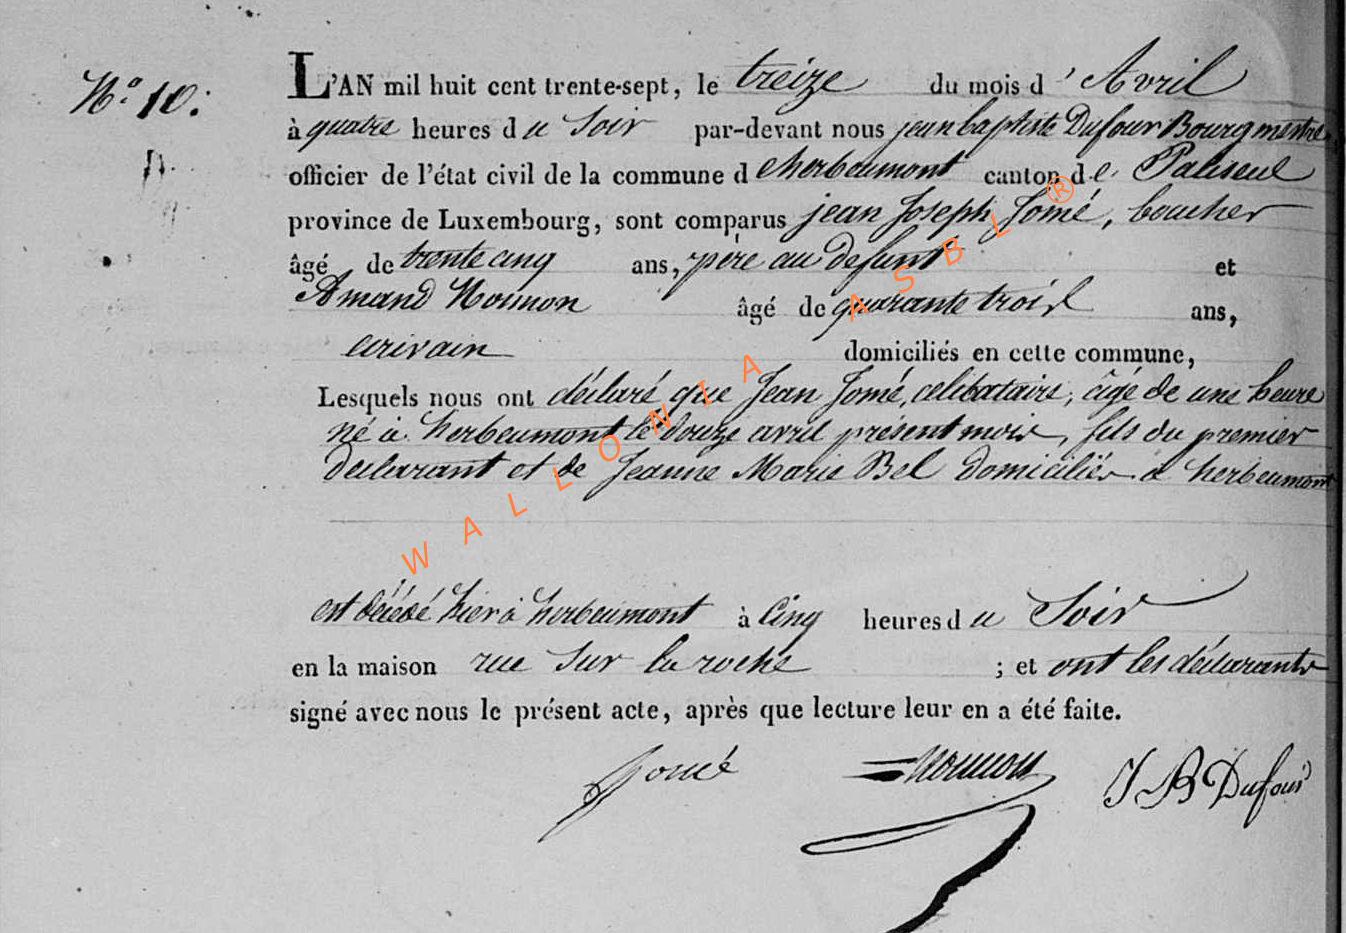 N° 10.
L'AN mil huit cent trente-sept, le treize du mois d'Avril
à quatre heures du Soir par-devant nous jean baptiste Dufour Bourgmestre,
officier de l'état civil de la commune d'herbeumont canton de Paliseul
province de Luxembourg, sont comparus jean Joseph Jomé, boucher
âgé de trente cinq ans, père au défunt et
Amand Noumon âgé de quarante trois ans,
ecrivain domiciliés en cette commune,
Lesquels nous ont déclaré que Jean Jomé, celibataire, âgé de une heure
né à herbeumont le douze avril présent mois, fils du premier
declarant et de Jeanne Marie Bel domiciliés a herbeumont
est décédé hier à herbeumont à Cinq heures du Soir
en la maison rue Sur la roche ; et ont les déclarants
signé avec nous le présent acte, après que lecture leur en a été faite.
Jomé Noumon J B Dufour
WALLONIA ASBL ®